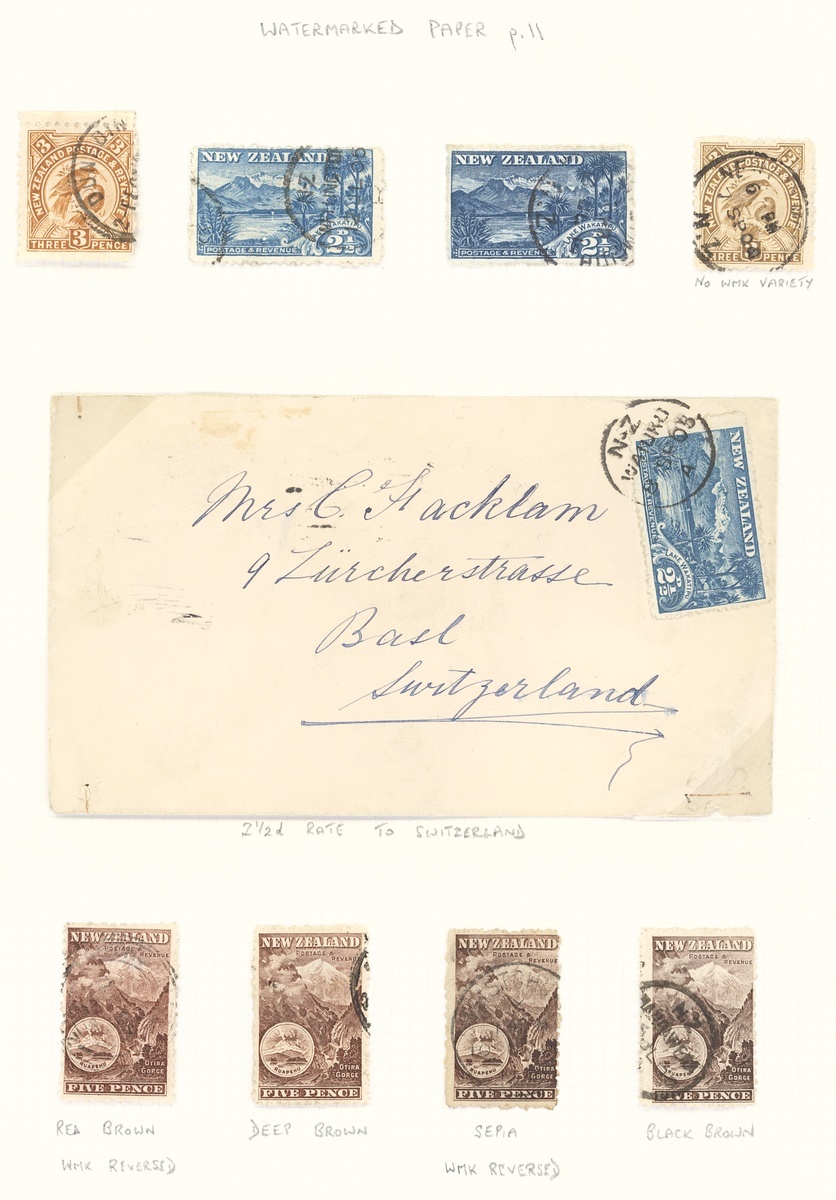 WATERMARKED PAPER p.11
3 3
NEW ZEALAND POSTAGE & REVENUE
THREE 3 PENCE
NEW ZEALAND
LAKE WAKATIPU
POSTAGE & REVENUE 2½D
NEW ZEALAND
LAKE WAKATIPU
POSTAGE & REVENUE 2½D
ZEALAND POSTAGE & REVENUE
THREE PENCE
NO WMK VARIETY
N-Z
05
NEW ZEALAND
POSTAGE & REVENUE
LAKE WAKATIPU
2½D
Mrs C. Hacklam
9 Zürcherstrasse
Basl
Switzerland
2½d RATE TO SWITZERLAND
NEW ZEALAND
POSTAGE & REVENUE
RUAPEHU
OTIRA GORGE
FIVE PENCE
NEW ZEALAND
POSTAGE & REVENUE
RUAPEHU
OTIRA GORGE
FIVE PENCE
NEW ZEALAND
POSTAGE & REVENUE
RUAPEHU
OTIRA GORGE
FIVE PENCE
NEW ZEALAND
POSTAGE & REVENUE
RUAPEHU
OTIRA GORGE
FIVE PENCE
RED BROWN
DEEP BROWN
SEPIA
BLACK BROWN
WMK REVERSED
WMK REVERSED